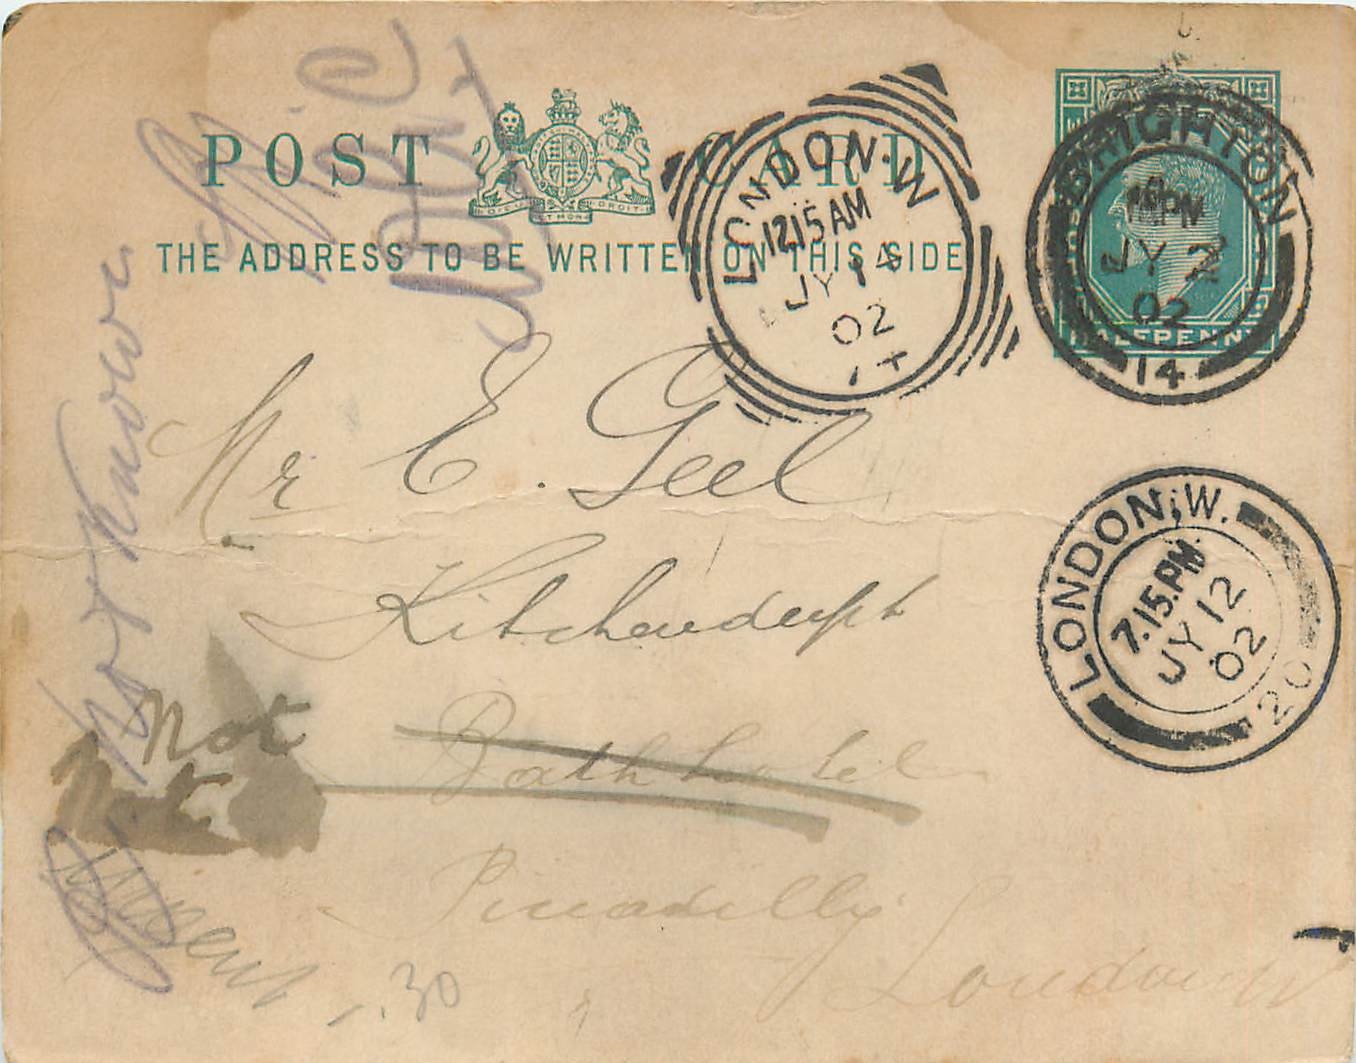 POST CARD
THE ADDRESS TO BE WRITTEN ON THIS SIDE
LONDON.W
12.15 AM
JY 14
02
BRIGHTON
PM
JY 2
02
14
HALFPENNY
Mr E. Geel
Kitchendept
Bath hotel
Piccadilly
London W
LONDON, W.
7.15.PM
JY 12
02
20
Not Known
Not
Not
30